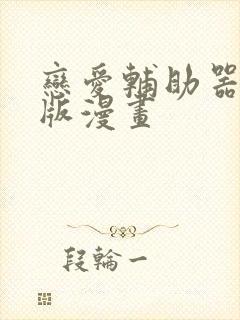 戀愛輔助器
版漫畫
段輪一